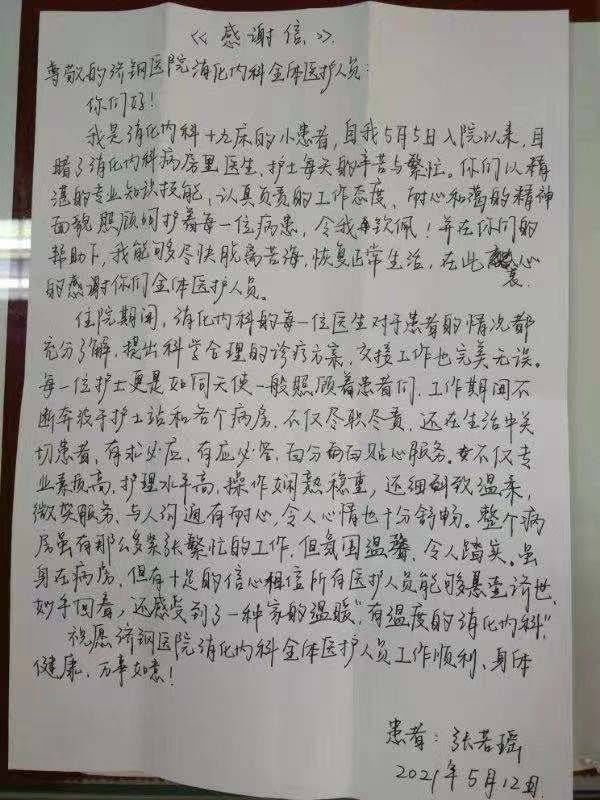 《感谢信》
尊敬的济钢医院消化内科全体医护人员：
你们好！
我是消化内科十九床的小患者，自我5月5日入院以来，目
睹了消化内科病房里医生、护士每天的辛苦与繁忙。你们以精
湛的专业知识技能、认真负责的工作态度、耐心和蔼的精神
面貌照顾呵护着每一位病患，令我钦佩！并在你们的
帮助下，我能够尽快脱离苦海，恢复正常生活，在此衷心
的感谢你们全体医护人员。
住院期间，消化内科的每一位医生对于患者的情况都
充分了解，提出科学合理的诊疗方案，交接工作也完美无误。
每一位护士更是如同天使一般照顾着患者们，工作期间不
断奔波于护士站和各个病房，不仅尽职尽责，还在生活中关
切患者，有求必应，有应必答，百分百贴心服务。不仅专
业素质高，护理水平高，操作娴熟稳重，还细致温柔，
微笑服务、与人沟通有耐心，令人心情也十分舒畅。整个病
房虽有那么多紧张繁忙的工作，但氛围温馨，令人踏实。虽
身在病房，但有十足的信心相信所有医护人员能够悬壶济世、
妙手回春，还感受到了一种家的温暖“有温度的消化内科”。
祝愿济钢医院消化内科全体医护人员工作顺利、身体
健康、万事如意！
患者：张若瑶
2021年5月12日